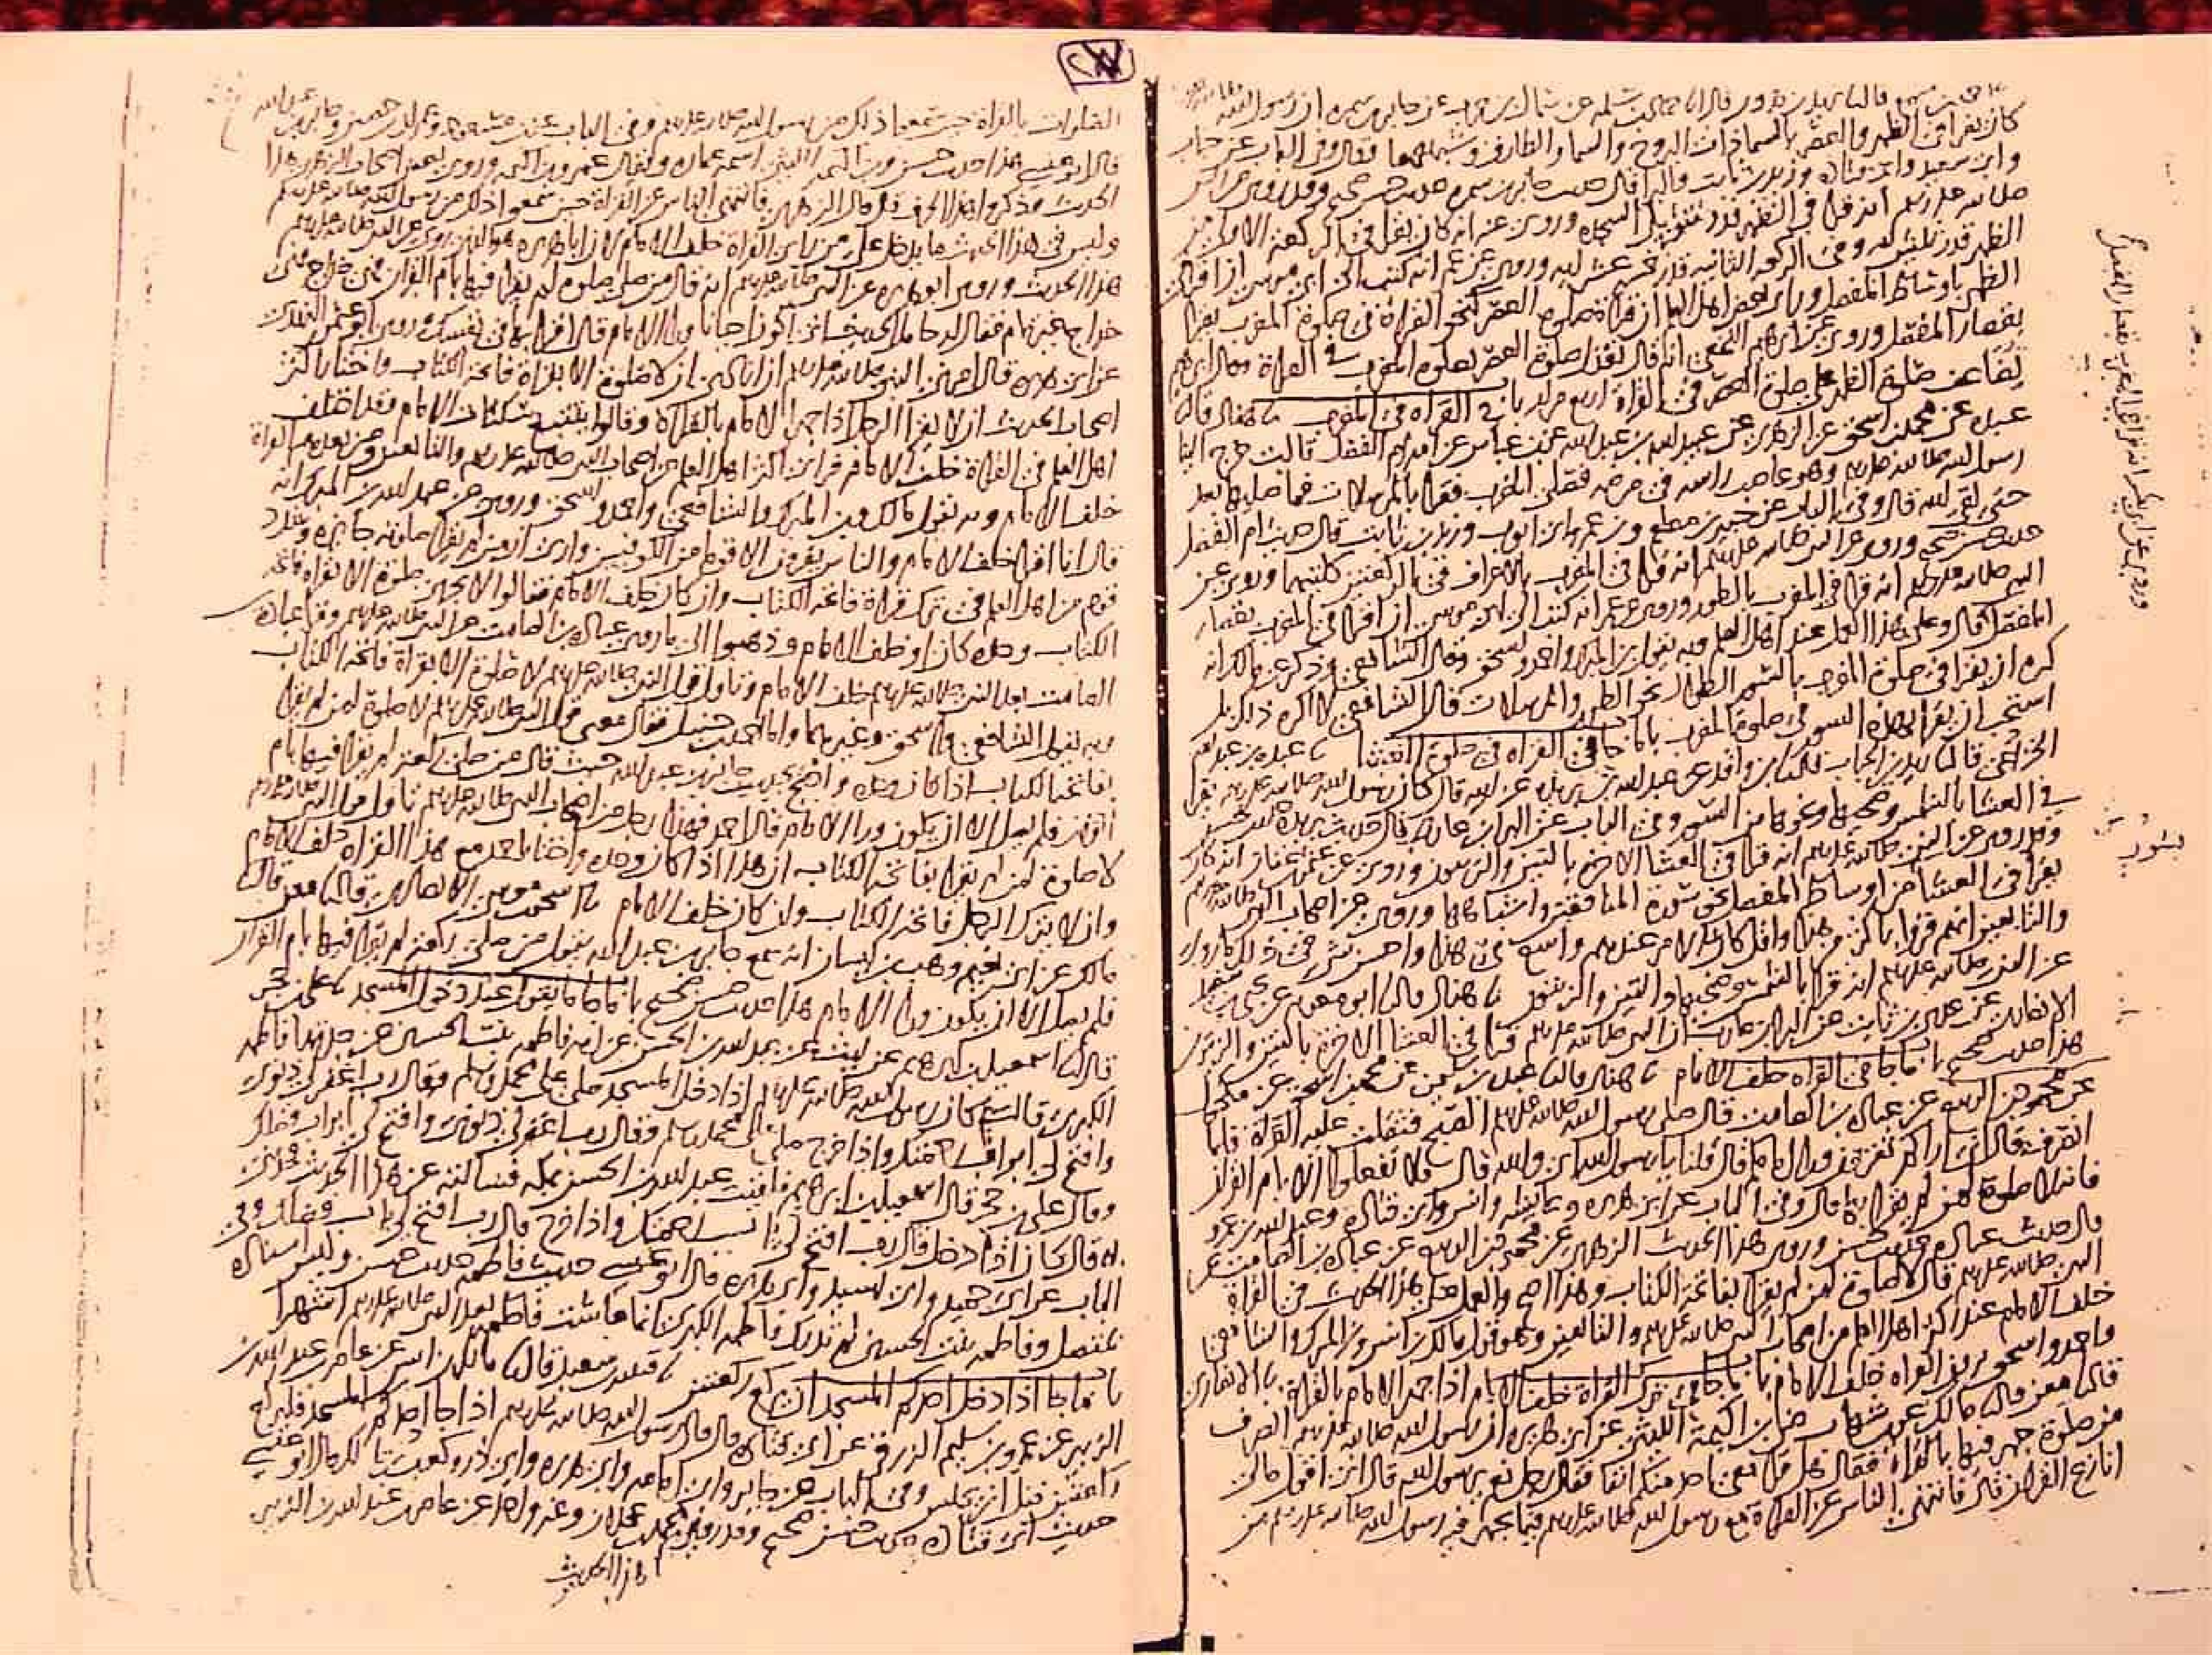 قال نا يزيد بن هارون قال انا حماد بن سلمه عن سماك بن حرب عن جابر بن سمره ان رسول الله صلى الله عليه
كان يقرا في الظهر والعصر بالسماء ذات البروج والسماء والطارق وشبههما قال وفي الباب عن خباب
وابي سعيد وابي قتاده وزيد بن ثابت والبرا قال حديث جابر بن سمره حديث حسن صحيح وقد روي عن النبي
صلى الله عليه وسلم انه قرا في الظهر قدر تنزيل السجده وروي عنه انه كان يقرا في الركعة الاولى من
الظهر قدر ثلثين ايه وفي الركعه الثانيه قدر خمس عشر ايه وروي عن عمر انه كتب الى ابي موسى ان اقرا في
الظهر باوساط المفصل وراى بعض اهل العلم ان قراة صلوة العصر كنحو القراة في صلوة المغرب يقرا
بقصار المفصل وروي عن ابرهيم النخعي انه قال تعدل صلوة العصر بصلوة المغرب في القراة وقال ابرهيم
تضاعف صلوة الظهر على صلوة العصر في القراة اربع مرار باب في القراه في المغرب نا هناد قال نا
عبده عن محمد بن اسحق عن الزهري عن عبيد الله بن عبد الله عن ابن عباس عن امه ام الفضل قالت خرج الينا
رسول الله صلى الله عليه وسلم وهو عاصب راسه في مرضه فصلى المغرب فقرا بالمرسلات فما صلاها بعد
حتى لقي الله قال وفي الباب عن جبير بن مطعم وابن عمر وابي ايوب وزيد بن ثابت قال حديث ام الفضل
حديث حسن صحيح وروي عن النبي صلى الله عليه وسلم انه قرا في المغرب بالاعراف في الركعتين كلتيهما وروي عن
النبي صلى الله عليه وسلم انه قرا في المغرب بالطور وروي عن عمر انه كتب الى ابي موسى ان اقرا في المغرب بقصار
المفصل قال وعلى هذا العمل عند اهل العلم وبه يقول ابن المبرك واحمد واسحق وقال الشافعي وذكر عن مالك انه
كره ان يقرا في صلوة المغرب بالسور الطوال نحو الطور والمرسلات قال الشافعي لا اكره ذلك بل
استحب ان يقرا بهذه السور في صلوة المغرب باب ما جا في القراه في صلوة العشا نا عبده بن عبد الله
الخزاعي قال نا زيد بن الحباب قال نا ابن واقد عن عبد الله بن بريده عن ابيه قال كان رسول الله صلى الله عليه وسلم يقرا
في العشا بالشمس وضحيها ونحوها من السور وفي الباب عن البرا بن عازب قال حديث بريده حديث حسن
وقد روي عن النبي صلى الله عليه وسلم انه قرا في العشا الاخره بالتين والزيتون وروي عن عثمن بن عفان انه كان
يقرا في العشا من اوساط المفصل نحو سورة المنافقين واشباهها وروي عن اصحاب النبي صلى الله عليه وسلم
والتابعين انهم قروا باكثر من هذا واقل كان الامر عندهم واسع في هذا واحسن شي في ذلك ما روي
عن النبي صلى الله عليه وسلم انه قرا بالشمس وضحيها والتين والزيتون نا هناد قال نا ابو معويه عن يحيى بن سعيد
الانصاري عن عدي بن ثابت عن البرا بن عازب ان النبي صلى الله عليه وسلم قرا في العشا الاخره بالتين والزيتون
هذا حديث صحيح باب ما جا في القراه خلف الامام نا هناد قال نا عبده بن سليمن عن محمد بن اسحق عن مكحول
عن محمود بن الربيع عن عباده بن الصامت قال صلى رسول الله صلى الله عليه وسلم الصبح فثقلت عليه القراة فلما
انصرف قال اني اراكم تقرون ورا امامكم قال قلنا يا رسول الله اي والله قال فلا تفعلوا الا بام القران
فانه لا صلوة لمن لم يقرا بها قال وفي الباب عن ابي هريره وعايشه وانس وابي قتاده وعبد الله بن عمرو
قال حديث عباده حديث حسن وروى هذا الحديث الزهري عن محمود بن الربيع عن عباده بن الصامت عن
النبي صلى الله عليه وسلم قال لا صلوة لمن لم يقرا بفاتحة الكتاب وهذا اصح والعمل على هذا الحديث في القراة
خلف الامام عند اكثر اهل العلم من اصحاب النبي صلى الله عليه وسلم والتابعين وهو قول مالك بن انس وابن المبرك والشافعي
واحمد واسحق يرون القراه خلف الامام باب ما جا في ترك القراة خلف الامام اذا جهر الامام بالقراة نا الانصاري
قال نا معن قال نا مالك عن ابن شهاب عن ابن اكيمة الليثي عن ابي هريره ان رسول الله صلى الله عليه وسلم انصرف
من صلوة جهر فيها بالقراة فقال هل قرا معي احد منكم انفا فقال رجل نعم يا رسول الله قال اني اقول مالي
انازع القران قال فانتهى الناس عن القراة مع رسول الله صلى الله عليه وسلم فيما يجهر فيه رسول الله صلى الله عليه وسلم من
وروي عن ابي بكر انه قرا في المغرب بقصار المفصل
بسور
الصلوات بالقراة حين سمعوا ذلك من رسول الله صلى الله عليه وسلم وفي الباب عن ابن مسعود وعمران بن حصين وجابر بن عبد الله
قال ابو عيسى هذا حديث حسن وابن اكيمه الليثي اسمه عماره ويقال عمرو بن اكيمه وروى بعض اصحاب الزهري هذا
الحديث وذكروا هذا الحرف قال قال الزهري فانتهى الناس عن القراة حين سمعوا ذلك من رسول الله صلى الله عليه وسلم
وليس في هذا الحديث ما يدخل على من راى القراة خلف الامام لان ابا هريره هو الذي روى عن النبي صلى الله عليه وسلم
هذا الحديث وروى ابو هريره عن النبي صلى الله عليه وسلم انه قال من صلى صلوة لم يقرا فيها بام القران فهي خداج فهي
خداج غير تمام فقال له حامل الحديث اني اكون احيانا ورا الامام قال اقرا بها في نفسك وروى ابو عثمن النهدي
عن ابي هريره قال امرني النبي صلى الله عليه وسلم ان انادي ان لا صلوة الا بقراة فاتحة الكتاب واختار اكثر
اصحاب الحديث ان لا يقرا الرجل اذا جهر الامام بالقراة وقالوا يتتبع سكتات الامام وقد اختلف
اهل العلم في القراة خلف الامام فراى اكثر اهل العلم من اصحاب النبي صلى الله عليه وسلم والتابعين ومن بعدهم القراة
خلف الامام وبه يقول مالك وابن المبرك والشافعي واحمد واسحق وروي عن عبد الله بن المبرك انه
قال انا اقرا خلف الامام والناس يقرون الا قوم من الكوفيين وارى ان من لم يقرا صلوته جايزه وشدد
قوم من اهل العلم في ترك قراة فاتحه الكتاب وان كان خلف الامام فقالوا لا تجزي صلوة الا بقراة فاتحة
الكتاب وحده كان او خلف الامام وذهبوا الى ما روى عباده بن الصامت عن النبي صلى الله عليه وسلم وقرا عباده بن
الصامت بعد النبي صلى الله عليه وسلم خلف الامام وتاول قول النبي صلى الله عليه وسلم لا صلوة الا بقراة فاتحة الكتاب
وبه يقول الشافعي واسحق وغيرهما واما احمد بن حنبل فقال معنى قول النبي صلى الله عليه وسلم لا صلوة لمن لم يقرا
بفاتحة الكتاب اذا كان وحده واحتج بحديث جابر بن عبد الله حيث قال من صلى ركعة لم يقرا فيها بام
القران فلم يصل الا ان يكون ورا الامام قال احمد فهذا رجل من اصحاب النبي صلى الله عليه وسلم تاول قول النبي صلى الله عليه وسلم
لا صلوة لمن لم يقرا بفاتحة الكتاب ان هذا اذا كان وحده واختار احمد مع هذا القراة خلف الامام
وان لا يترك الرجل فاتحة الكتاب وان كان خلف الامام نا اسحق بن موسى الانصاري قال نا معن قال نا
مالك عن ابي نعيم وهب بن كيسان انه سمع جابر بن عبد الله يقول من صلى ركعة لم يقرا فيها بام القران
فلم يصل الا ان يكون ورا الامام هذا حديث حسن صحيح باب ما جا ما يقول عند دخول المسجد نا علي بن حجر
قال نا اسمعيل بن ابرهيم عن ليث عن عبد الله بن الحسن عن امه فاطمه بنت الحسين عن جدتها فاطمه
الكبرى قالت كان رسول الله صلى الله عليه وسلم اذا دخل المسجد صلى على محمد وسلم وقال رب اغفر لي ذنوبي
وافتح لي ابواب رحمتك واذا خرج صلى على محمد وسلم وقال رب اغفر لي ذنوبي وافتح لي ابواب فضلك
وقال علي بن حجر قال اسمعيل بن ابرهيم فلقيت عبد الله بن الحسن بمكه فسالته عن هذا الحديث فحدثني
به قال كان اذا دخل قال رب افتح لي باب رحمتك واذا خرج قال رب افتح لي باب فضلك وفي
الباب عن ابي حميد وابي اسيد وابي هريره قال ابو عيسى حديث فاطمه حديث حسن وليس اسناده
بمتصل وفاطمه بنت الحسين لم تدرك فاطمه الكبرى انما عاشت فاطمه بعد النبي صلى الله عليه وسلم اشهرا
باب ما جا اذا دخل احدكم المسجد ان يركع ركعتين نا قتيبه بن سعيد قال نا مالك بن انس عن عامر بن عبد الله بن
الزبير عن عمرو بن سليم الزرقي عن ابي قتاده قال قال رسول الله صلى الله عليه وسلم اذا جا احدكم المسجد فليركع
ركعتين قبل ان يجلس وفي الباب عن جابر وابي امامه وابي هريره وابي ذر وكعب بن مالك قال ابو عيسى
حديث ابي قتاده حديث حسن صحيح وقد روى محمد بن عجلان وغير واحد عن عامر بن عبد الله بن الزبير
هذا الحديث